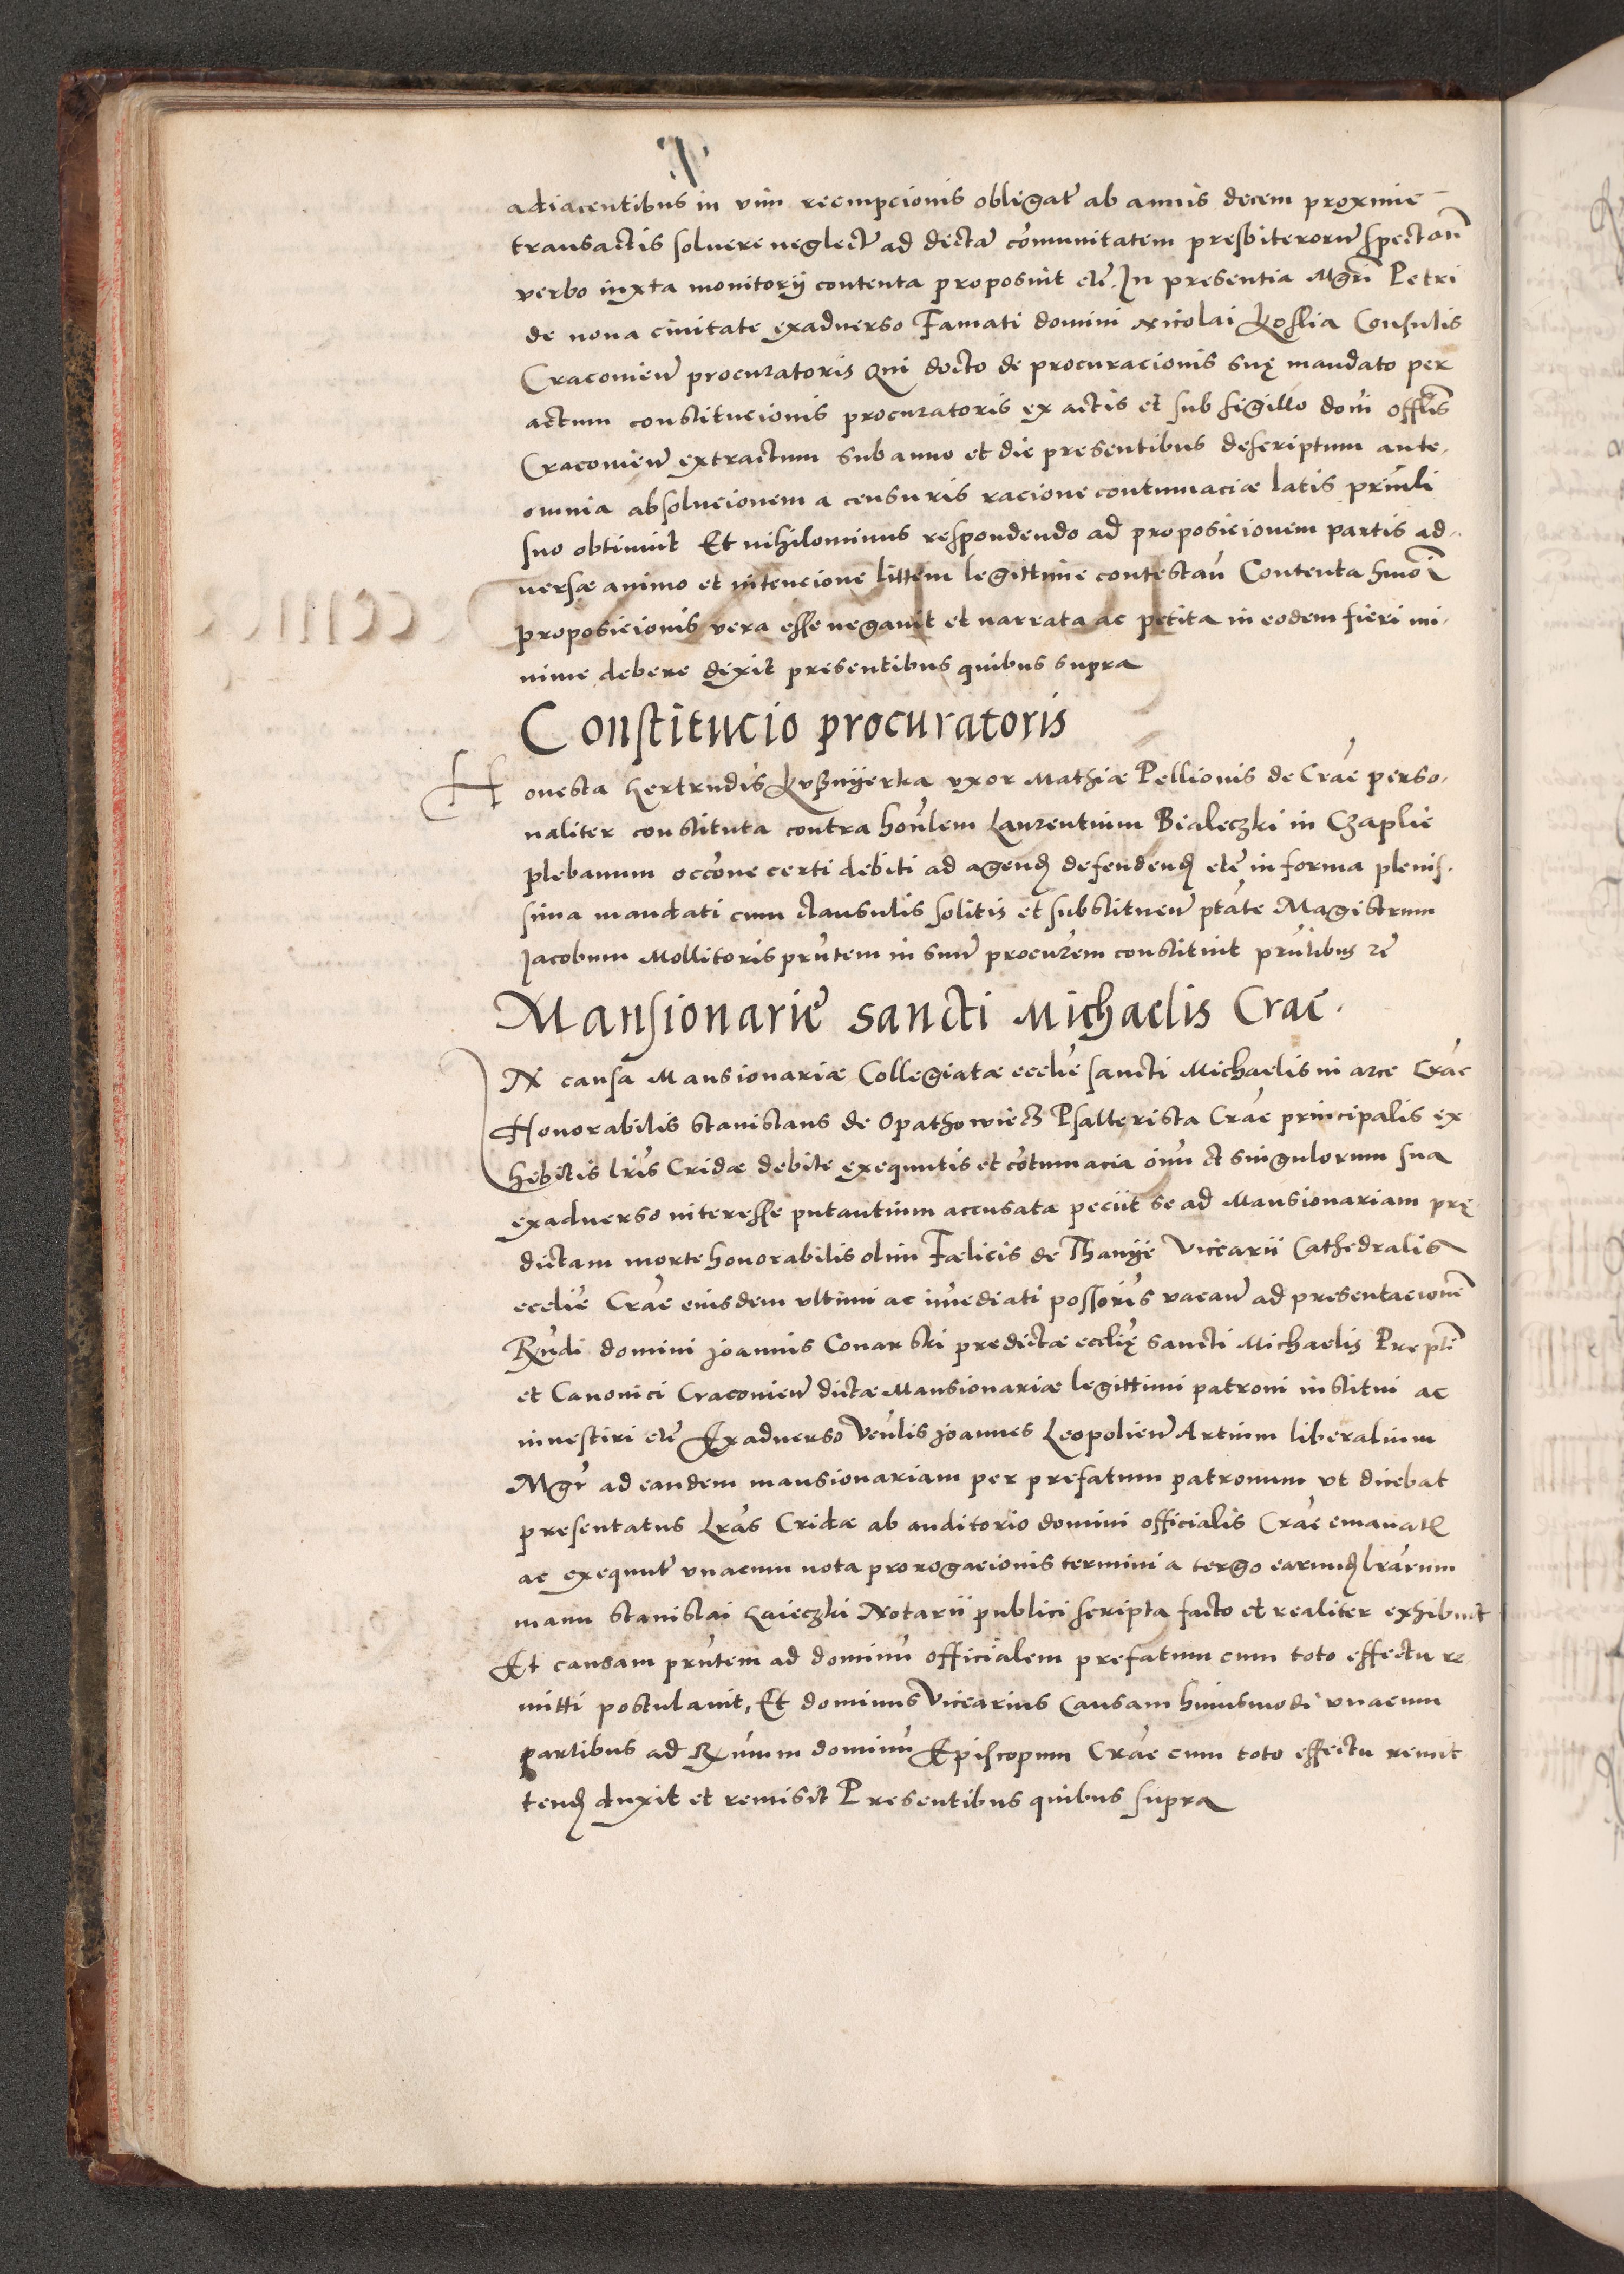 adiacentibus in vim reempcionis obligat̃ ab annis decem proxime
transactis soluere neglect̃ ad dictã cõmunitatem presbiterorũ spectan̄
verbo iuxta monitorij contenta proposuit etc̃. In presentia Mgrĩ Petri
de noua ciuitate exaduerso Famati domini Nicolai Koslia Consulis
Cracouien̄ procuratoris Qui docto de procuracionis suę mandato per
actum constitucionis procuratoris ex actis et sub sigillo dom̃ offlis
Cracouien̄ extractum sub anno et die presentibus descriptum ante
omnia absolucionem a censuris racione contumaciæ latis prinli
suo obtinuit Et nihilominus respondendo ad proposicionem partis ad-
uersæ animo et intencione littem legittime contestan̄ Contenta hmoĩ
proposicionis vera esse negauit et narrata ac petita in eodem fieri mi-
nime debere dixit presentibus quibus supra
Constitucio procuratoris
Honesta Gertrudis Kvßnijerka vxor Mathiæ Pellionis de Crac̃ perso-
naliter constituta contra honlem Laurentium Bialeczki in Czaplie
plebanum occõne certi debiti ad agend̃ defendend̃ etc̃ in forma plenis-
sima mandati cum clausulis solitis et substituen̄ ptãte Magistrum
Jacobum Mollitoris prñtem in suũ procurem constituit prñtibus rc̃
Mansionarie sancti Michaelis Crac̃.
IN causa Mansionariæ Collegiatæ ecclie sancti Michaelis in arce Crac̃
Honorabilis Stanislaus de Opathowiecz Psalterista Crac̃ principalis ex
hibitis lrĩs Cridæ debite exequutis et cõtumacia oĩm et singulorum sua
exaduerso interesse putantium accusata peciit se ad Mansionariam prę
dictam morte honorabilis olim Fœlicis de Thanije Vicarii Cathedralis
ecclie Crac̃ eiusdem vltimi ac imediati possoris vacan̄ ad presentacionẽ
Rñdi domini Joannis Conarski predictæ ecclię sancti Michaelis Preptĩ
et Canonici Cracouien̄ dictæ Mansionariæ legittimi patroni institui ac
inuestiri etc̃ Exaduerso Venlis Joannes Leopolien̄ Artium liberalium
Mgr̃ ad eandem mansionariam per prefatum patronum vt dicebat
presentatus Lrãs Cridæ ab auditorio domini officialis Crac̃ emanat̃
ac exequut̃ vnacum nota prorogacionis termini a tergo earund̃ lrãrum
manu Stanislai Gaieczki Notarii publici scripta facto et realiter exhibuit
Et causam prñtem ad dominũ officialem prefatum cum toto effectu re
mitti postulauit, Et dominus Vicarius Causam huiusmodi vnacum
partibus ad Rmum dominũ Episcopum Crac̃ cum toto effectu remit
tend̃ duxit et remisit Presentibus quibus supra